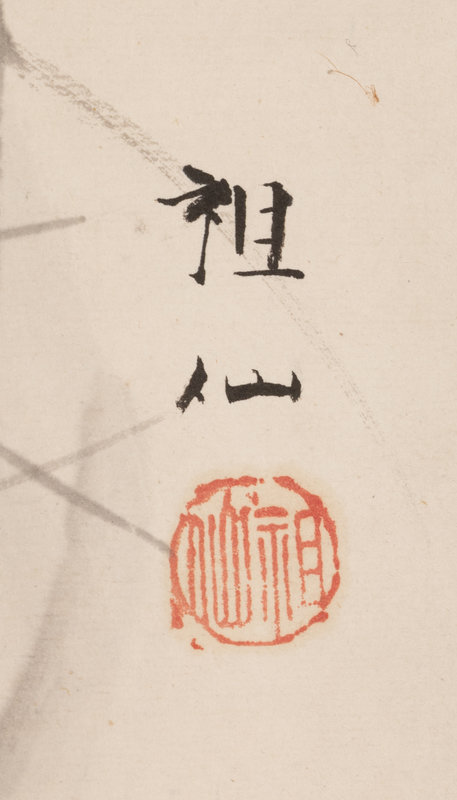 祖仙
祖仙